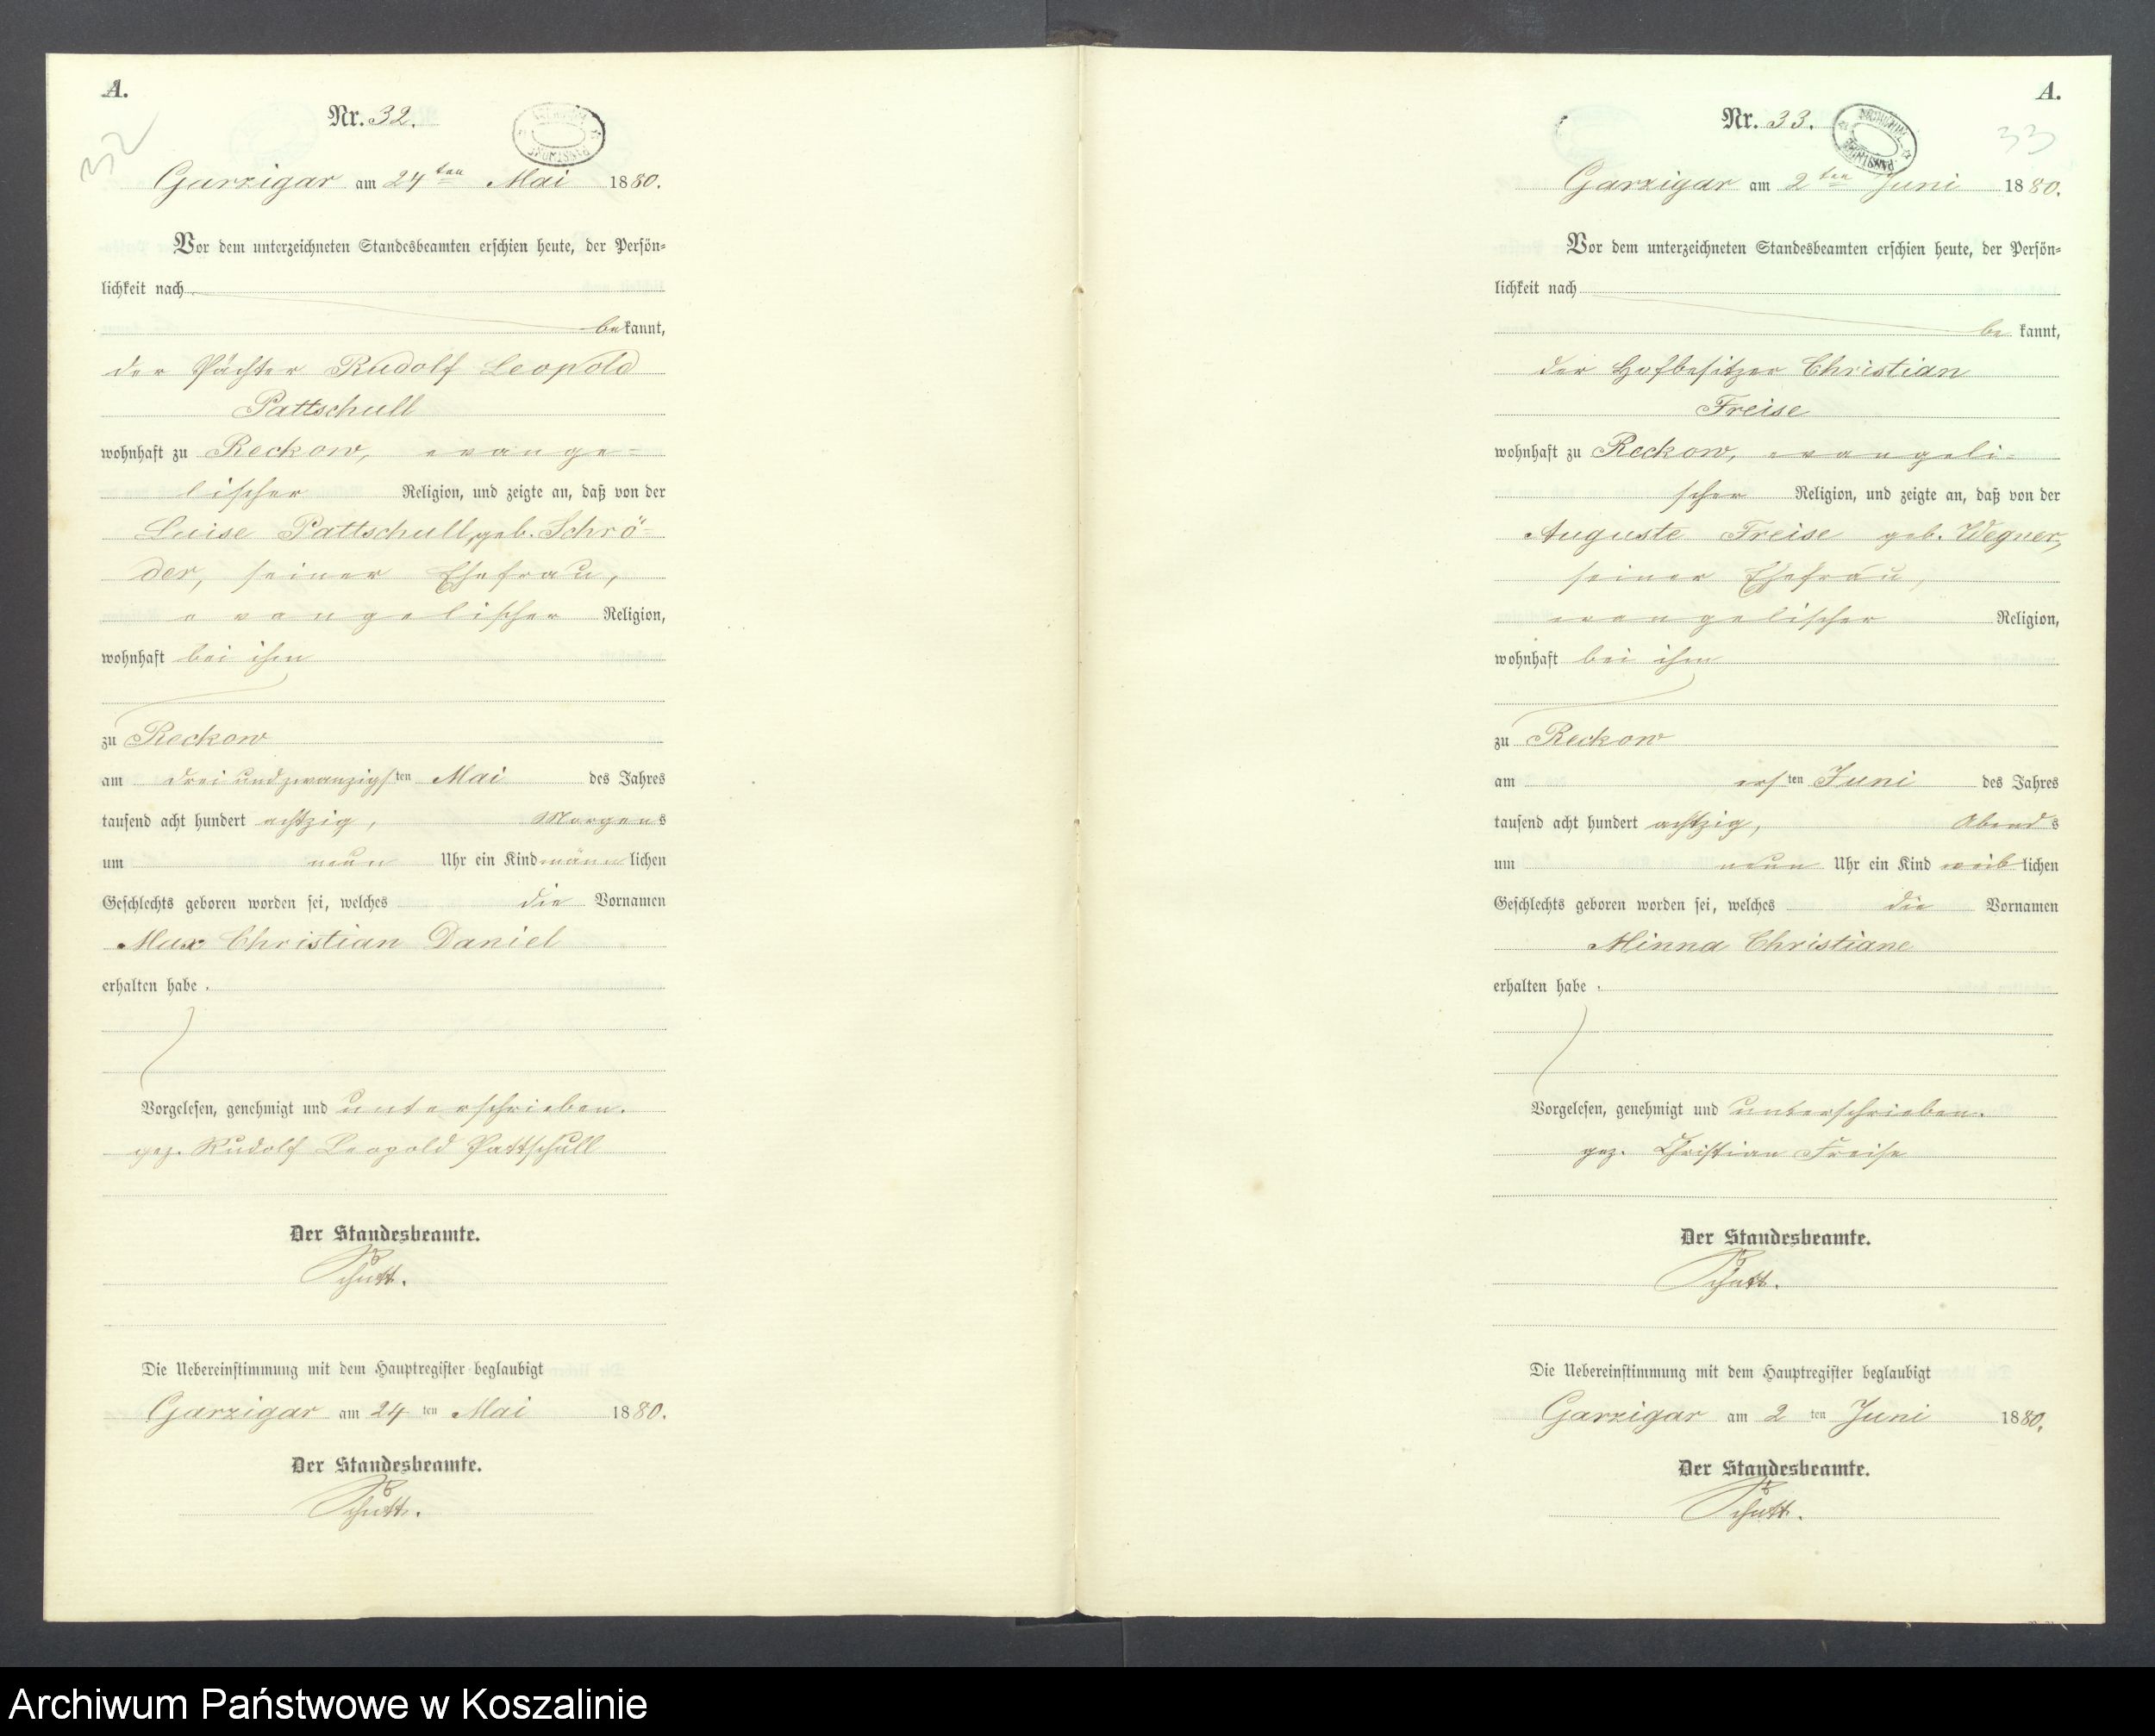 A.
Nr. 32.
32
Garzigar am 24 ten Mai 1880.
Vor dem unterzeichneten Standesbeamten erschien heute, der Persön-
lichkeit nach
bekannt,
der Pächter Rudolf Leopold
Pattschull
wohnhaft zu Reckow, evange-
lischer Religion, und zeigte an, daß von der
Luise Pattschull, geb. Schrö-
der, seiner Ehefrau,
evangelischer Religion,
wohnhaft bei ihm
zu Reckow
am dreiundzwanzigsten Mai des Jahres
tausend acht hundert achtzig, Morgens
um neun Uhr ein Kind männlichen
Geschlechts geboren worden sei, welches die Vornamen
Max Christian Daniel
erhalten habe.
Vorgelesen, genehmigt und unterschrieben.
gez. Rudolf Leopold Pattschull
Der Standesbeamte.
Die Uebereinstimmung mit dem Hauptregister beglaubigt
Garzigar am 24 ten Mai 1880.
Der Standesbeamte.
A.
Nr. 33.
33
Garzigar am 2 ten Juni 1880.
Vor dem unterzeichneten Standesbeamten erschien heute, der Persön-
lichkeit nach
be kannt,
der Hofbesitzer Christian
Freise
wohnhaft zu Reckow, evangeli-
scher Religion, und zeigte an, daß von der
Auguste Freise geb. Wegner,
seiner Ehefrau,
evangelischer Religion,
wohnhaft bei ihm
zu Reckow
am ersten Juni des Jahres
tausend acht hundert achtzig, Abends
um neun Uhr ein Kind weiblichen
Geschlechts geboren worden sei, welches die Vornamen
Minna Christiane
erhalten habe.
Vorgelesen, genehmigt und unterschrieben.
gez. Christian Freise
Der Standesbeamte.
Die Uebereinstimmung mit dem Hauptregister beglaubigt
Garzigar am 2 ten Juni 1880.
Der Standesbeamte.
Archiwum Państwowe w Koszalinie